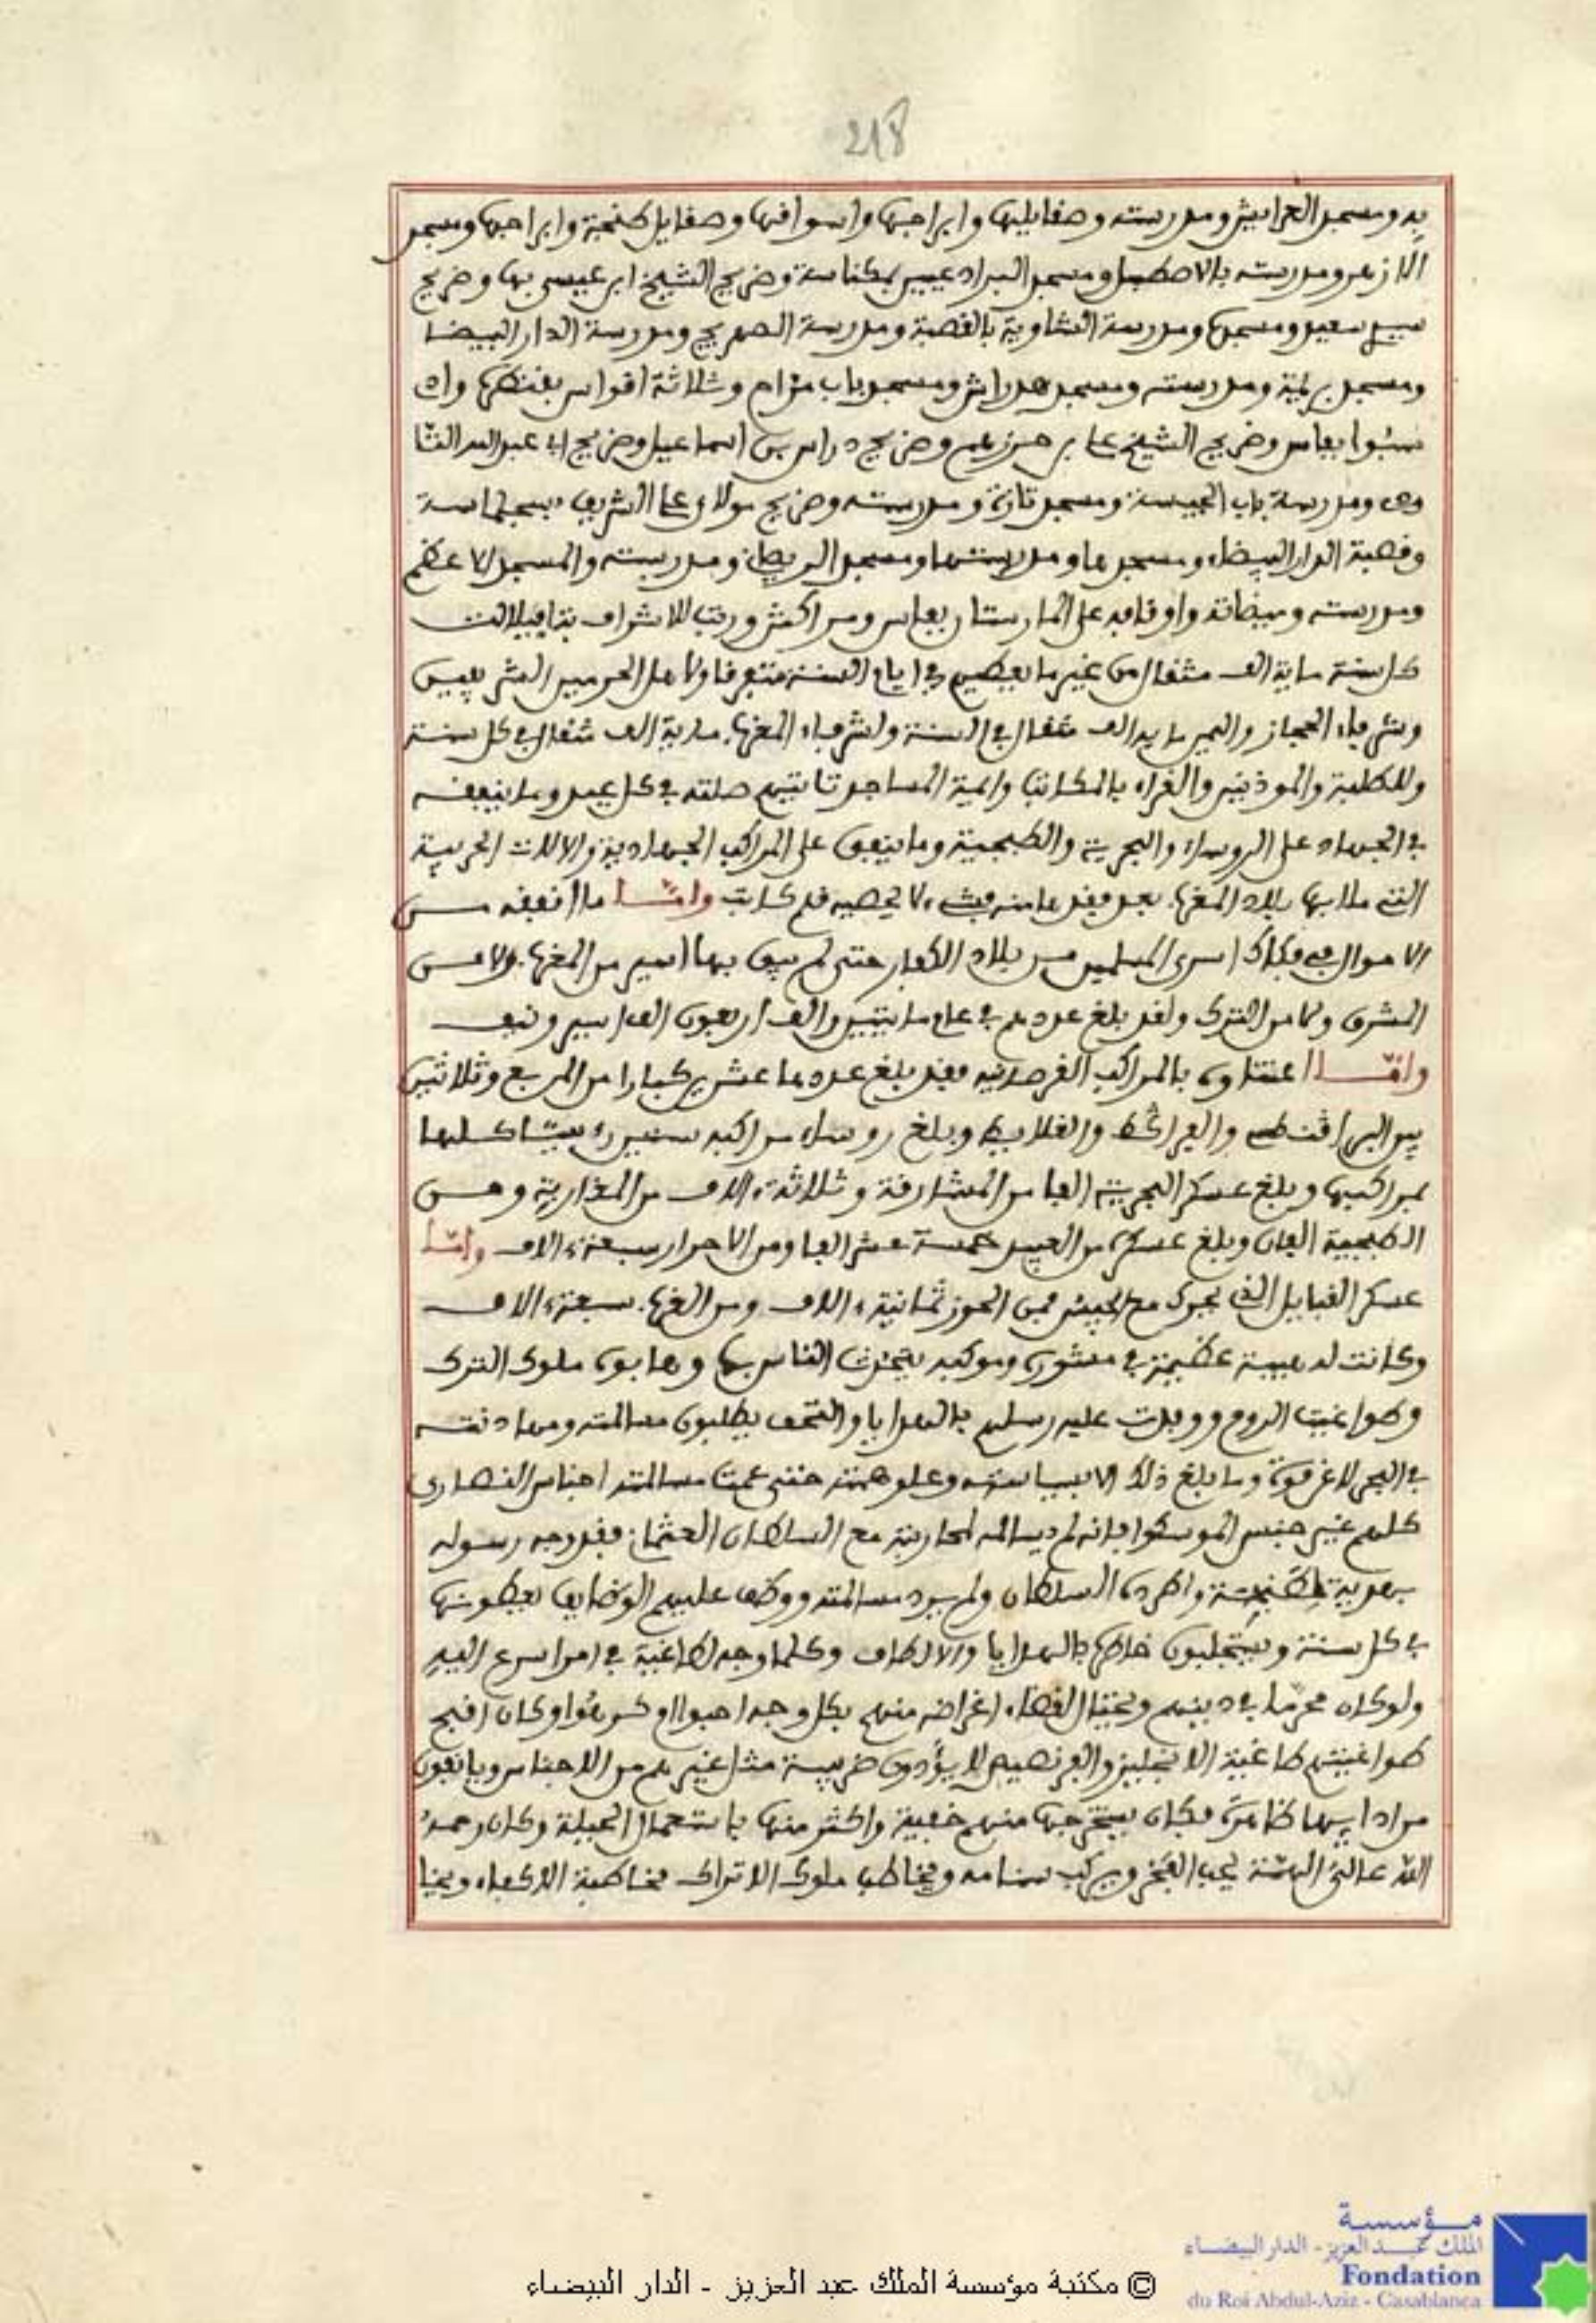 218
به ومسجد العرايش ومدرسته وصقايلها وابراجها واسواقها وصقايل طنجة وابراجها ومسجد
الازهر ومدرسته بالاصطبل ومسجد البرادعيين بمكناسة وضريح الشيخ ابن عيسى بها وضريح
سيدي سعيد ومسجدها ومدرسة الشاوية بالقصبة ومدرسة الصهريج ومدرسة الدار البيضا
ومسجد بريمة ومدرسته ومسجد هدراش ومسجد باب مراح وثلاثة اقواس بقنطرة واد
سبوا بفاس وضريح الشيخ علي بن حرزهم وضريح دراس بن اسماعيل وضريح ابي عبد الله التا
ودي ومدرسة باب الجيسة ومسجد تازة ومدرسته وضريح مولاي علي الشريف بسجلماسة
وقصبة الدار البيضاء ومسجدها ومدرستها ومسجد الريصاني ومدرسته والمسجد الاعظم
ومدرسته وميضاته واوقافه على المارستان بفاس ومراكش ورتب للاشراف بتافيلالت
كل سنة ماية الف مثقال من غير ما يعطيهم في ايام السنة متفرقا ولاهل الحرمين الشريفين
وشرفاء الحجاز واليمن ماية الف مثقال في السنة ولشرفاء المغرب ماية الف مثقال في كل سنة
وللطلبة والموذنين والقراء بالمكاتب وايمة المساجد تاتيهم صلته في كل عيد وما ينفقه
في الجهاد على الروساء والبحرية والطبجية وما ينفق على المراكب الجهادية والالات الحربية
التي ملا بها بلاد المغرب فحدث عنه فشيء لا يحصيه قلم كاتب وامّا ما انفقه من
الاموال في فكاك اسرى المسلمين من بلاد الكفار حتى لم يبق بها اسير من المغرب ولا من
المشرق ولا من الترك ولقد بلغ عددهم في عام مايتين والف اربعون الف اسير ونيف
وامّا اعتناوه بالمراكب القرصانية فقد بلغ عددها عشرين كبارا من المربع وثلاثين
من البراقنطي والفراكط والغلايط وبلغ روساء مراكبه ستين رءيسا كلها
بمراكبها وبلغ عسكر البحرية الفا من المشارقة وثلاثة ءالاف من المغاربة ومن
الطبجية الفان وبلغ عسكره من العبيد خمسة عشر الفا ومن الاحرار سبعة ءالاف وامّا
عسكر القبايل الذي يجرك مع الجيش فمن الحوز ثمانية ءالاف ومن الغرب سبعة ءالاف
وكانت له هيبة عظيمة في مشوره وموكبه يتحدث الناس بها وهابوه ملوك الترك
وطواغيت الروم ووفدت عليه رسلهم بالهدايا والتحف يطلبون مسالمته ومهادنته
في البحر لاغير قوة وما بلغ ذلك الا بسياسته وعلو همته حتى عمت مسالمته اجناس النصارى
كلهم غير جنس الموسكوا فانه لم يسالمه لمحاربته مع السلطان العثماني فقد وجه رسوله
بهدية لطنجة واطرده السلطان ولم يرد مسالمته ووظف عليهم الوظايف يعطونها
في كل سنة ويستجلبون خاطره بالهدايا والالطاف وكلما وجه لطاغية في امر اسرع اليه
ولوكان محرّما في دينهم ويحتال لقضاء اغراضه منهم بكل وجه احبوا او كرهوا وكان اقبح
طواغيتهم طاغية الانجليز والفرنصيص لا يؤدون ضريبة مثل غيرهم من الاجناس ويانفون
من ادايها ظاهرة فكان يستخرجها منهم خفية واكثر منها باستعمال الحيلة وكان رحمه
الله عالي الهمة يحب الفخر ويركب سنامه ويخاطب ملوك الاتراك مخاطبة الاكفاء ويخا
© مكتبة مؤسسة الملك عبد العزيز - الدار البيضاء
مؤسسة
الملك عبد العزيز - الدار البيضاء
Fondation
du Roi Abdul-Aziz - Casablanca